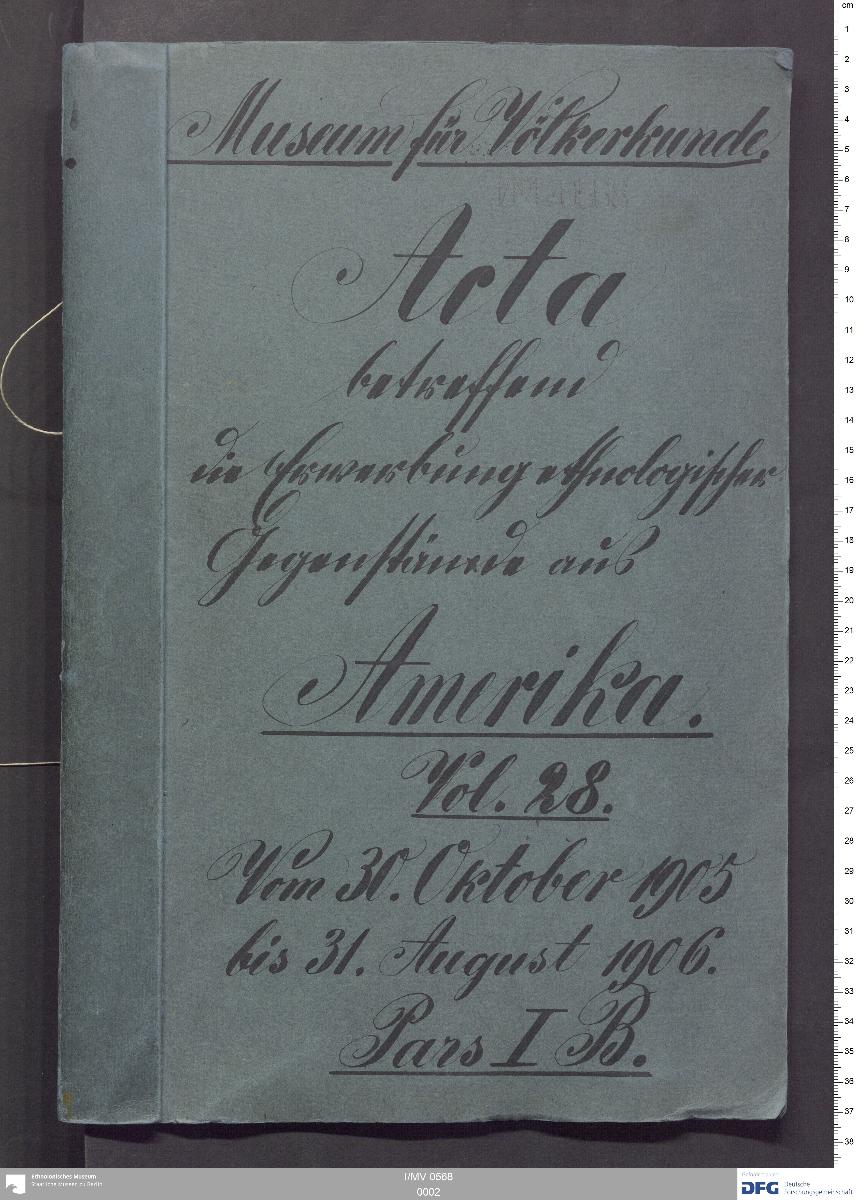 Museum für Völkerkunde.
Acta
betreffend
die Erwerbung ethnologischer
Gegenstände aus
Amerika.
Vol. 28.
Vom 30. Oktober 1905
bis 31. August 1906.
Pars I B.
cm
1
2
3
4
5
6
7
8
9
10
11
12
13
14
15
16
17
18
19
20
21
22
23
24
25
26
27
28
29
30
31
32
33
34
35
36
37
38
Ethnologisches Museum
Staatliche Museen zu Berlin
I/MV 0568
0002
Gefördert durch
DFG Deutsche
Forschungsgemeinschaft